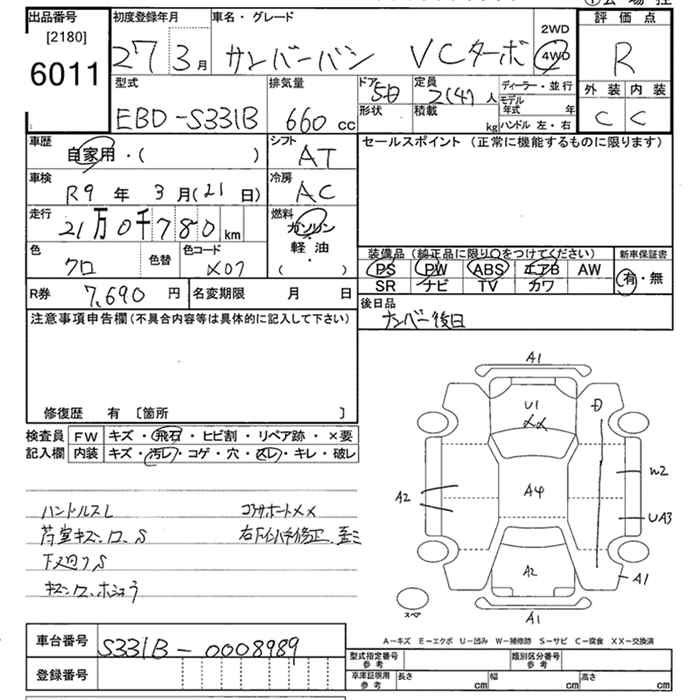 出品番号
[2180]
6011
初度登録年月
27 3月
車名・グレード
サンバーバン VCターボ
2WD
4WD
評価点
R
型式
EBD-S331B
排気量
660 cc
ドア
5D
形状
定員
2(4)人
積載
kg
ディーラー・並行
モデル年式 年
ハンドル 左・右
外装 内装
C C
車歴
自家用・( )
シフト
AT
セールスポイント (正常に機能するものに限ります)
車検
R9 年 3月(21日)
冷房
AC
走行
21万0千780 km
燃料
ガソリン
軽・油
( )
色
クロ
色替
色コード
X07
装備品 (純正品に限り○をつけてください)
PS PW ABS エアB AW
SR ナビ TV カワ
新車保証書
有・無
R券 7,690 円
名変期限 月 日
後日品
ナンバー後日
注意事項申告欄(不具合内容等は具体的に記入して下さい)
修復歴 有 [箇所 ]
検査員
記入欄
FW キズ・飛石・ヒビ割・リペア跡・×要
内装 キズ・汚レ・コゲ・穴・スレ・キレ・破レ
ハンドルスレ
コアサポートXX
荷室キズ、ワ、S
下廻りS
A1
U1
XX
A4
A2
A2
W2
UA3
A1
A1
スペア
A-キズ E-エクボ U-凹み W-補修跡 S-サビ C-腐食 XX-交換済
車台番号
S331B-0008989
登録番号
型式指定番号
参考
類別区分番号
参考
車庫証明用
参考
長さ cm
幅 cm
高さ cm